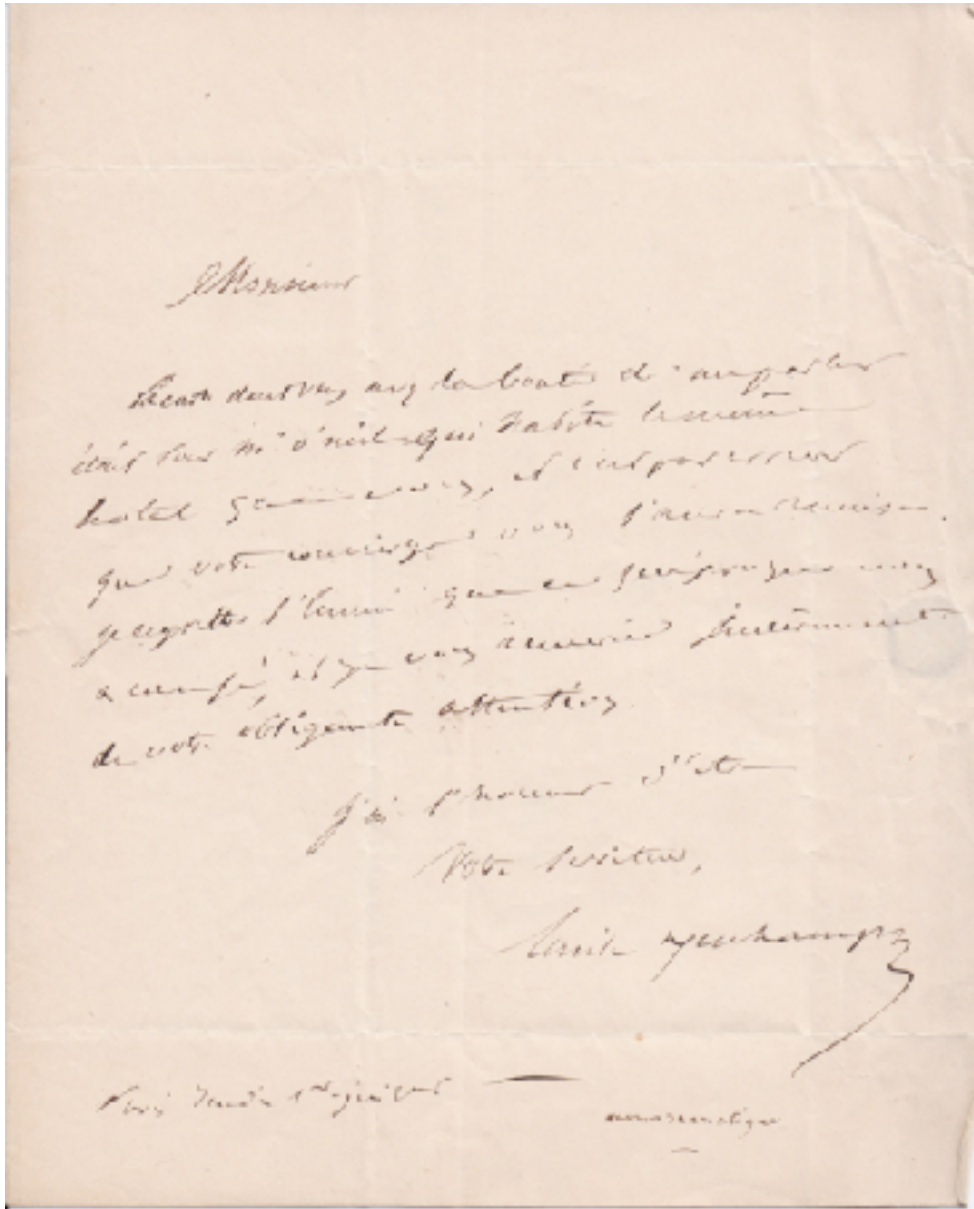 Monsieur
La carte dont vous avez la bonté de me parler
était pour Mr O'neil qui habite le même
hôtel que vous, et c'est par erreur
que votre concierge vous l'aura remise.
je regrette l'ennui que ce vous
a causé, et je vous remercie
de votre obligeante attention
J'ai l'honneur d'être
Votre serviteur,
Emile Deschamps
Paris 1er